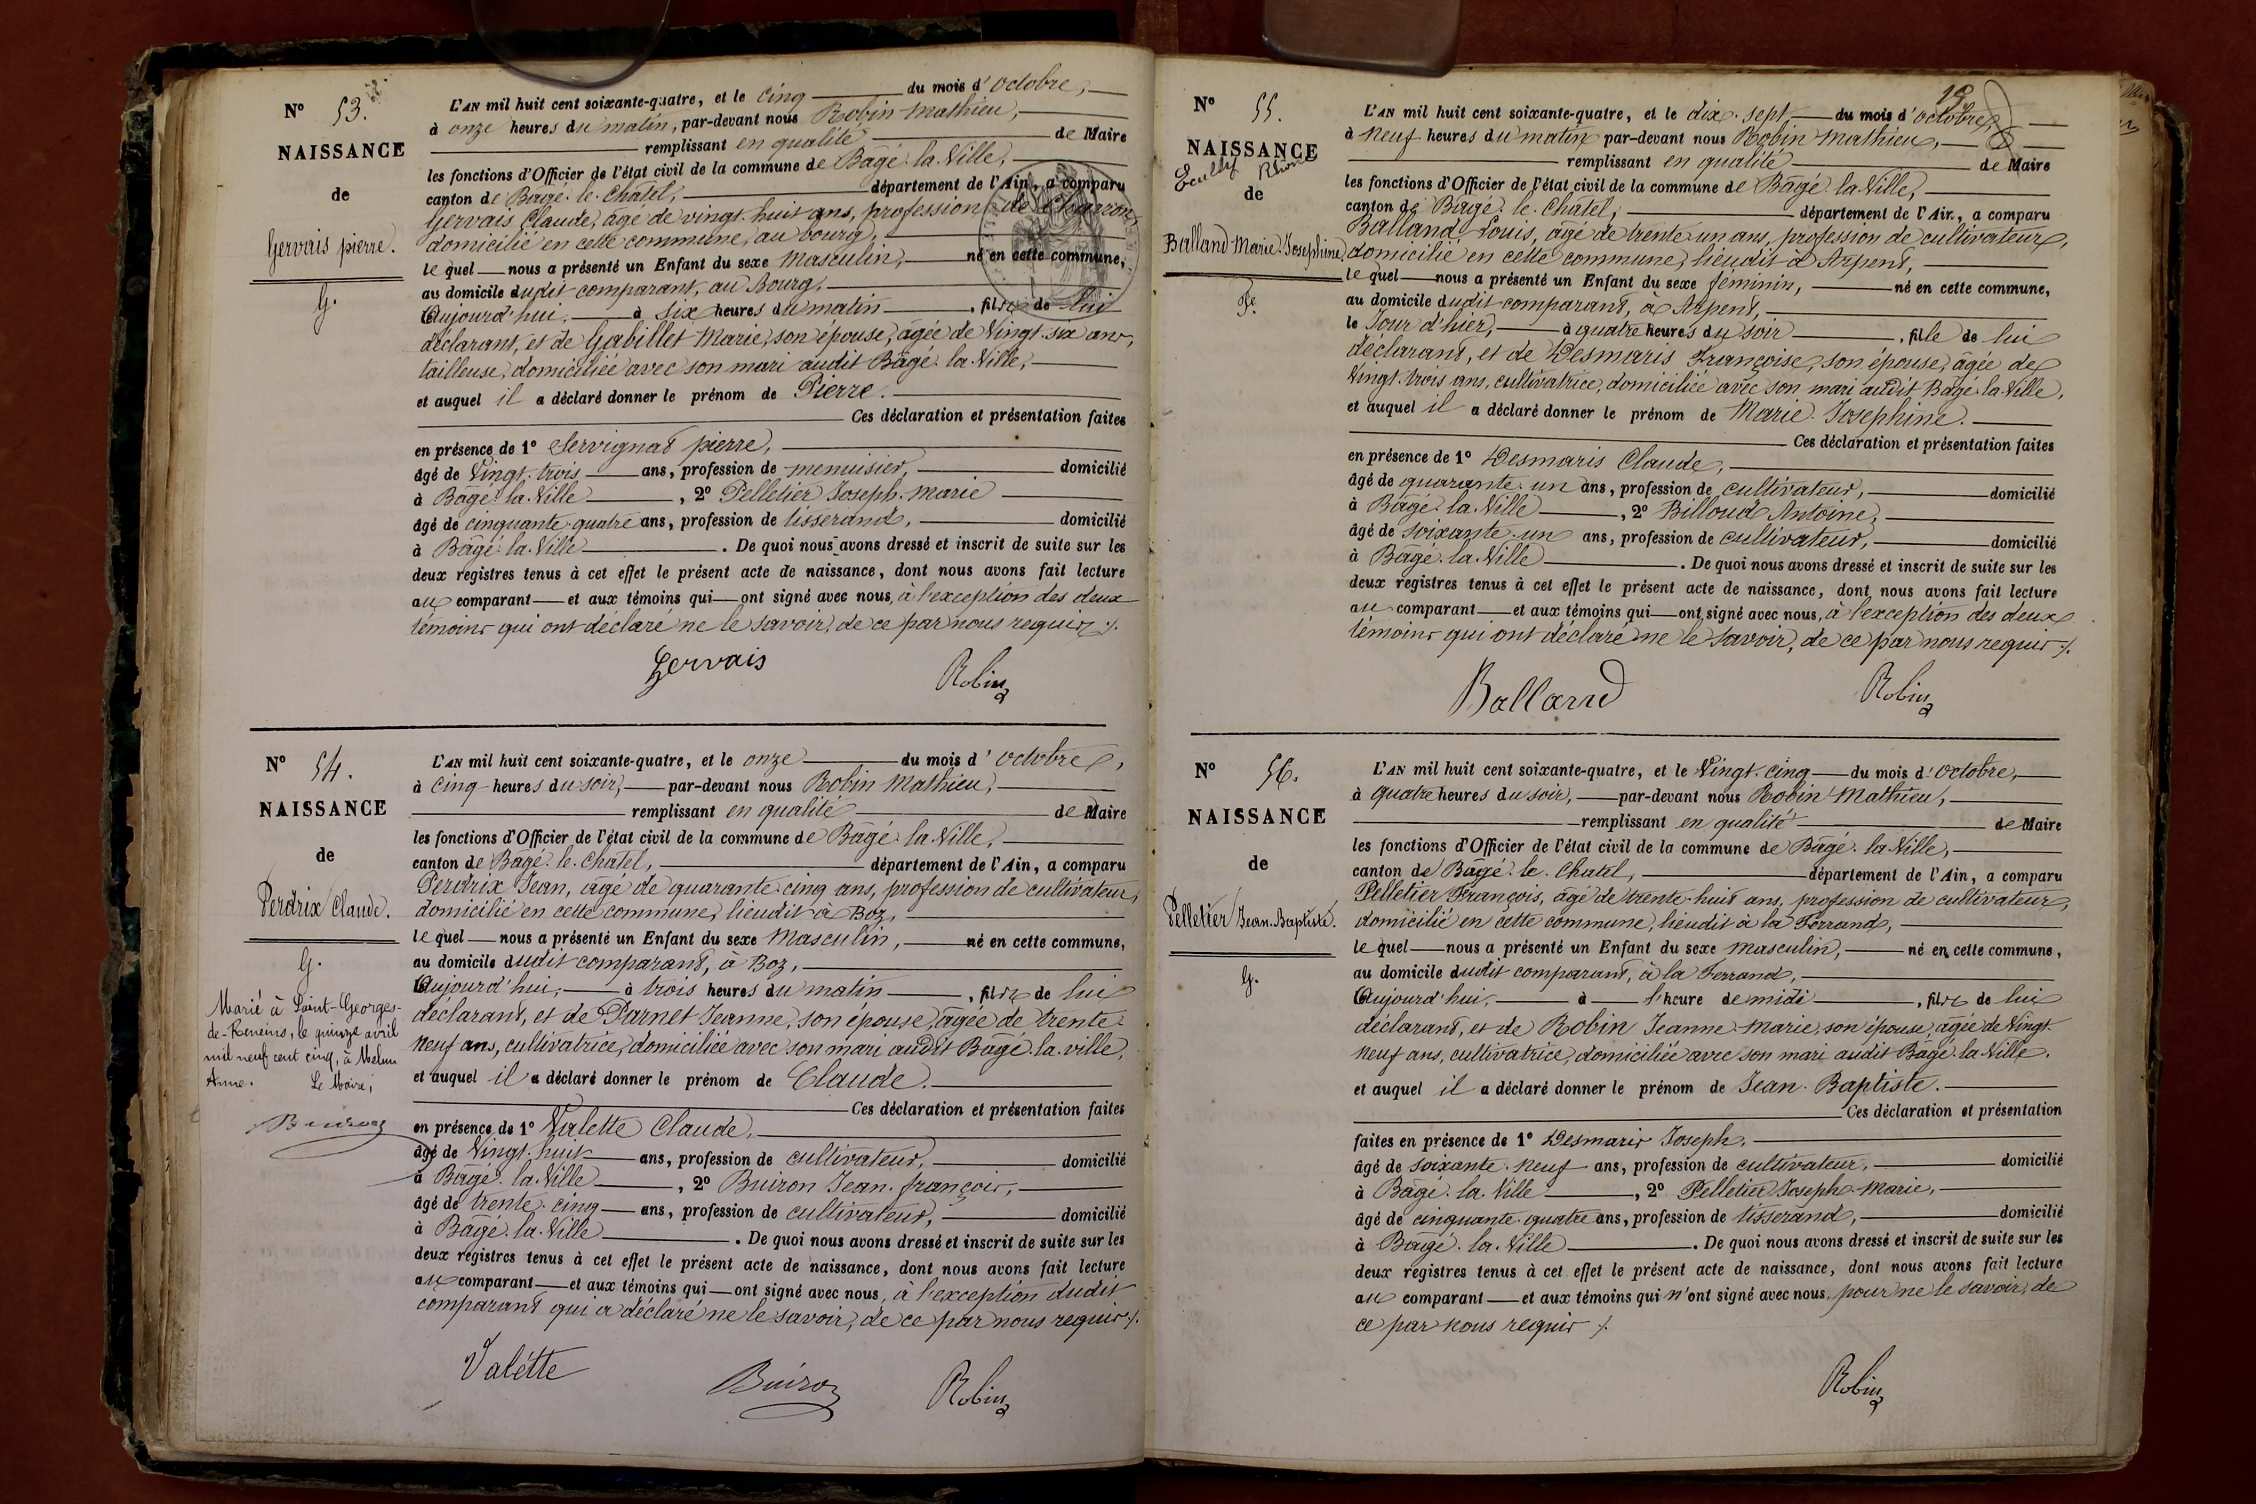 N° 53.
NAISSANCE
de
Gervais pierre.
G.
L'AN mil huit cent soixante-quatre, et le cinq du mois d'octobre,
à onze heures du matin, par-devant nous Robin Mathieu,
remplissant en qualité de Maire
les fonctions d'Officier de l'état civil de la commune de Bâgé-la-Ville,
canton de Bâgé-le-Chatel, département de l'Ain, a comparu
Gervais Claude, âgé de vingt-huit ans, profession de Charron,
domicilié en cette commune, au bourg,
lequel nous a présenté un Enfant du sexe Masculin, né en cette commune,
au domicile dudit comparant, au Bourg,
Aujourd'hui, à six heures du matin, fils de lui
déclarant, et de Gabillet Marie, son épouse, âgée de Vingt-six ans,
tailleuse, domiciliée avec son mari audit Bâgé-la-Ville,
et auquel il a déclaré donner le prénom de Pierre.
Ces déclaration et présentation faites
en présence de 1° Servignat pierre,
âgé de Vingt-trois ans, profession de menuisier, domicilié
à Bâgé-la-Ville, 2° Pelletier Joseph-Marie
âgé de cinquante-quatre ans, profession de tisserand, domicilié
à Bâgé-la-Ville. De quoi nous avons dressé et inscrit de suite sur les
deux registres tenus à cet effet le présent acte de naissance, dont nous avons fait lecture
au comparant et aux témoins qui ont signé avec nous, à l'exception des deux
témoins qui ont déclaré ne le savoir, de ce par nous requis ./.
Gervais Robin
N° 54.
NAISSANCE
de
Perdrix Claude.
G.
Marié à Saint-Georges-
de-Reneins, le quinze avril
mil neuf cent cinq, à Melun
Anne. Le Maire,
Buiron
L'AN mil huit cent soixante-quatre, et le onze du mois d'octobre,
à cinq heures du soir, par-devant nous Robin Mathieu,
remplissant en qualité de Maire
les fonctions d'Officier de l'état civil de la commune de Bâgé-la-Ville,
canton de Bâgé-le-Chatel, département de l'Ain, a comparu
Perdrix Jean, âgé de quarante-cinq ans, profession de cultivateur,
domicilié en cette commune, lieudit à Boz,
lequel nous a présenté un Enfant du sexe Masculin, né en cette commune,
au domicile dudit comparant, à Boz,
Aujourd'hui, à trois heures du matin, fils de lui
déclarant, et de Parnet Jeanne, son épouse, âgée de trente-
neuf ans, cultivatrice, domiciliée avec son mari audit Bâgé-la-ville,
et auquel il a déclaré donner le prénom de Claude.
Ces déclaration et présentation faites
en présence de 1° Valette Claude,
âgé de Vingt-huit ans, profession de cultivateur, domicilié
à Bâgé-la-Ville, 2° Buiron Jean-françois,
âgé de trente-cinq ans, profession de cultivateur, domicilié
à Bâgé-la-Ville. De quoi nous avons dressé et inscrit de suite sur les
deux registres tenus à cet effet le présent acte de naissance, dont nous avons fait lecture
au comparant et aux témoins qui ont signé avec nous, à l'exception dudit
comparant qui a déclaré ne le savoir, de ce par nous requis ./.
Valétte Buiron Robin
19
N° 55.
NAISSANCE
Ecully Rhône
de
Balland Marie-Josephine,
Fe.
L'AN mil huit cent soixante-quatre, et le dix-sept du mois d'octobre,
à neuf heures du matin par-devant nous Robin Mathieu,
remplissant en qualité de Maire
les fonctions d'Officier de l'état civil de la commune de Bâgé-la-Ville,
canton de Bâgé-le-Chatel, département de l'Ain, a comparu
Balland Louis, âgé de trente-un ans, profession de cultivateur,
domicilié en cette commune, lieudit à Arpent,
lequel nous a présenté un Enfant du sexe féminin, né en cette commune,
au domicile dudit comparant, à Arpent,
le Jour d'hier, à quatre heures du soir, fille de lui
déclarant, et de Desmaris Françoise, son épouse, âgée de
Vingt-trois ans, cultivatrice, domiciliée avec son mari audit Bâgé-la-Ville,
et auquel il a déclaré donner le prénom de Marie-Josephine.
Ces déclaration et présentation faites
en présence de 1° Desmaris Claude,
âgé de quarante-un ans, profession de cultivateur, domicilié
à Bâgé-la-Ville, 2° Billoud Antoine,
âgé de soixante-un ans, profession de cultivateur, domicilié
à Bâgé-la-Ville. De quoi nous avons dressé et inscrit de suite sur les
deux registres tenus à cet effet le présent acte de naissance, dont nous avons fait lecture
au comparant et aux témoins qui ont signé avec nous, à l'exception des deux
témoins qui ont déclaré ne le savoir, de ce par nous requis ./.
Balland Robin
N° 56.
NAISSANCE
de
Pelletier Jean-Baptiste.
G.
L'AN mil huit cent soixante-quatre, et le Vingt-cinq du mois d'octobre,
à quatre heures du soir, par-devant nous Robin Mathieu,
remplissant en qualité de Maire
les fonctions d'Officier de l'état civil de la commune de Bâgé-la-Ville,
canton de Bâgé-le-Chatel, département de l'Ain, a comparu
Pelletier François, âgé de trente-huit ans, profession de cultivateur,
domicilié en cette commune, lieudit à la Ferrand,
lequel nous a présenté un Enfant du sexe masculin, né en cette commune,
au domicile dudit comparant, à la Ferrand,
Aujourd'hui, à l'heure de midi, fils de lui
déclarant, et de Robin Jeanne-Marie, son épouse, âgée de Vingt-
neuf ans, cultivatrice, domiciliée avec son mari audit Bâgé-la-Ville.
et auquel il a déclaré donner le prénom de Jean-Baptiste.
Ces déclaration et présentation
faites en présence de 1° Desmaris Joseph,
âgé de soixante-neuf ans, profession de cultivateur, domicilié
à Bâgé-la-Ville, 2° Pelletier Joseph-Marie,
âgé de cinquante-quatre ans, profession de tisserand, domicilié
à Bâgé-la-Ville. De quoi nous avons dressé et inscrit de suite sur les
deux registres tenus à cet effet le présent acte de naissance, dont nous avons fait lecture
au comparant et aux témoins qui n'ont signé avec nous pour ne le savoir, de
ce par nous requis ./.
Robin